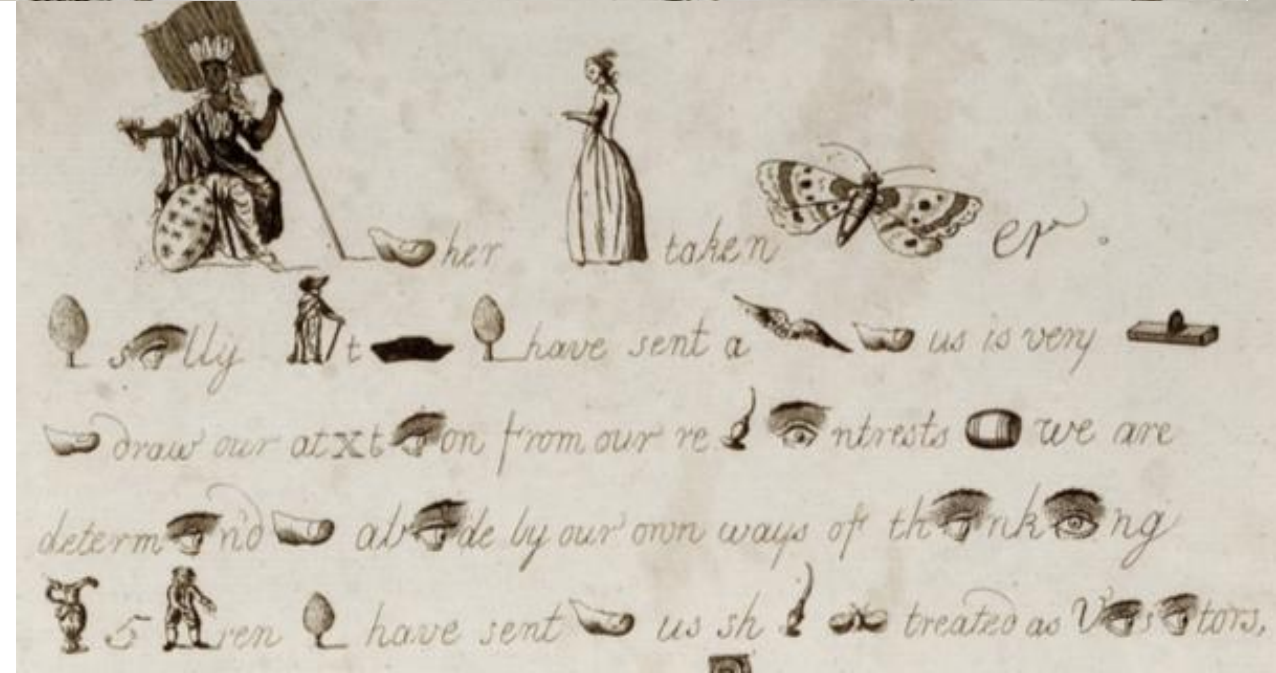 her taken er.
s lly t have sent a us is very
draw our atxt on from our re ntrests we are
determ n'd ab de by our own ways of th nk ng
5 ren have sent us sh treated as V s tors,